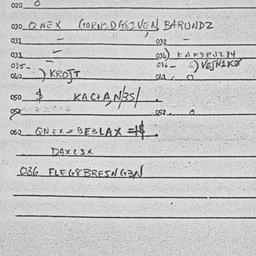 020 0
030 QNEX GORN2DG8IVEN BARUND2
031 – 032 –
033 – 034) KAK3PU214
035- 036- ) VEJH1K8
040 ) KROJT 042. 0
050 $ KACTAN/35/ .
052. 0
062 QNEX=BEBLAX =1$ .
DAXC3X
036 FLEG8BRESNG3N